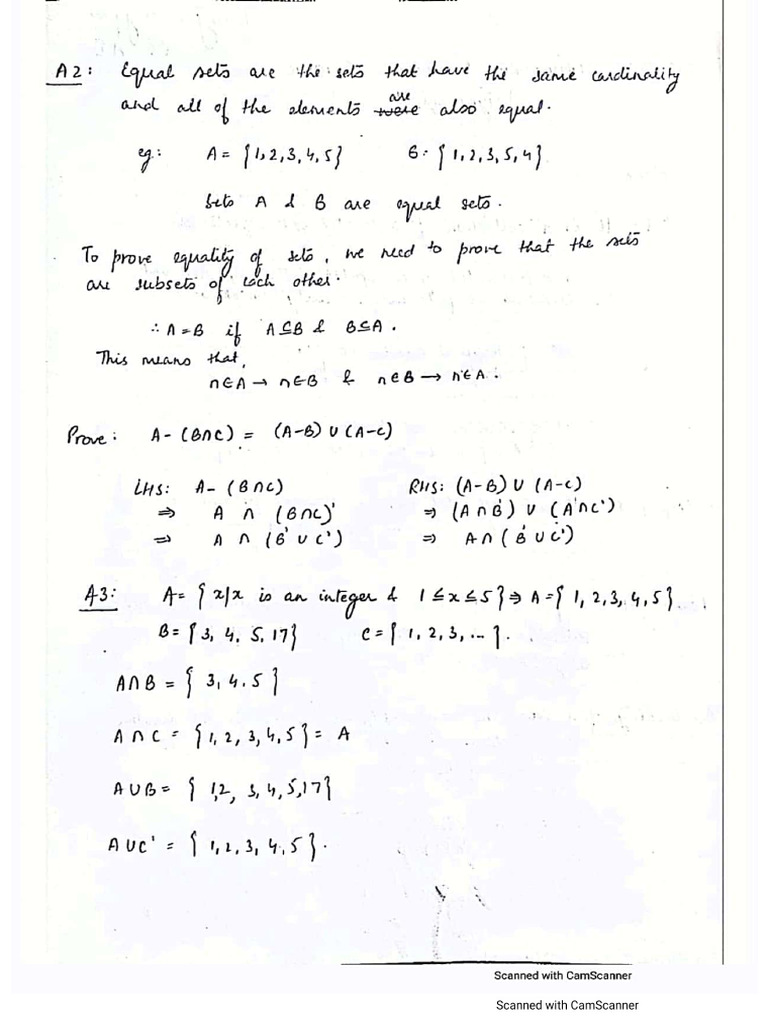 A2: Equal sets are the sets that have the same cardinality
and all of the elements ~~were~~ are also equal.
eg: A = {1,2,3,4,5} B = {1,2,3,5,4}
Sets A & B are equal sets.
To prove equality of sets, we need to prove that the sets
are subsets of each other.
∴ A=B if A⊆B & B⊆A.
This means that,
n∈A → n∈B & n∈B → n∈A.
Prove: A-(B∩C) = (A-B) ∪ (A-C)
LHS: A-(B∩C) RHS: (A-B) ∪ (A-C)
⇒ A ∩ (B∩C)' ⇒ (A∩B') ∪ (A∩C')
⇒ A ∩ (B'∪C') ⇒ A∩(B'∪C')
A3: A= {x/x is an integer & 1≤x≤5} ⇒ A={1,2,3,4,5}
B={3,4,5,17} C={1,2,3,...}.
A∩B = {3,4.5}
A∩C = {1,2,3,4,5} = A
A∪B = {1,2,3,4,5,17}
A∪C' = {1,2,3,4,5}.
Scanned with CamScanner
Scanned with CamScanner